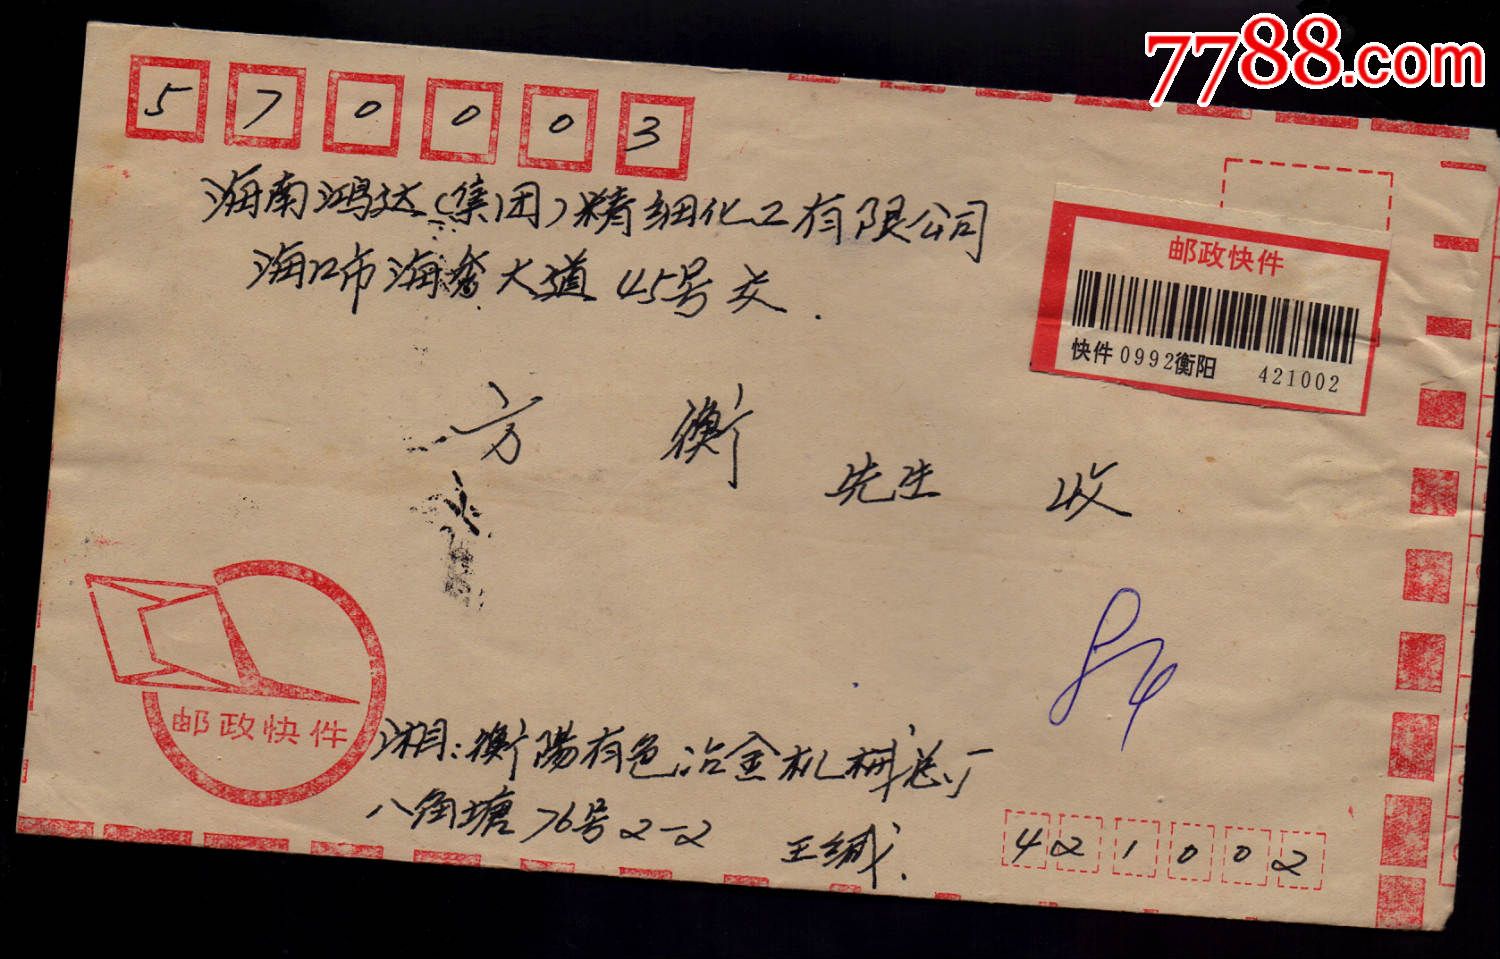 7788.com
570003
海南鸿达(集团)精细化工有限公司
海口市海秀大道45号交.
方衡 先生 收
邮政快件
快件0992衡阳 421002
邮政快件
湘:衡陽有色冶金机械总厂
八角塘76号2-2 王缄.
421002